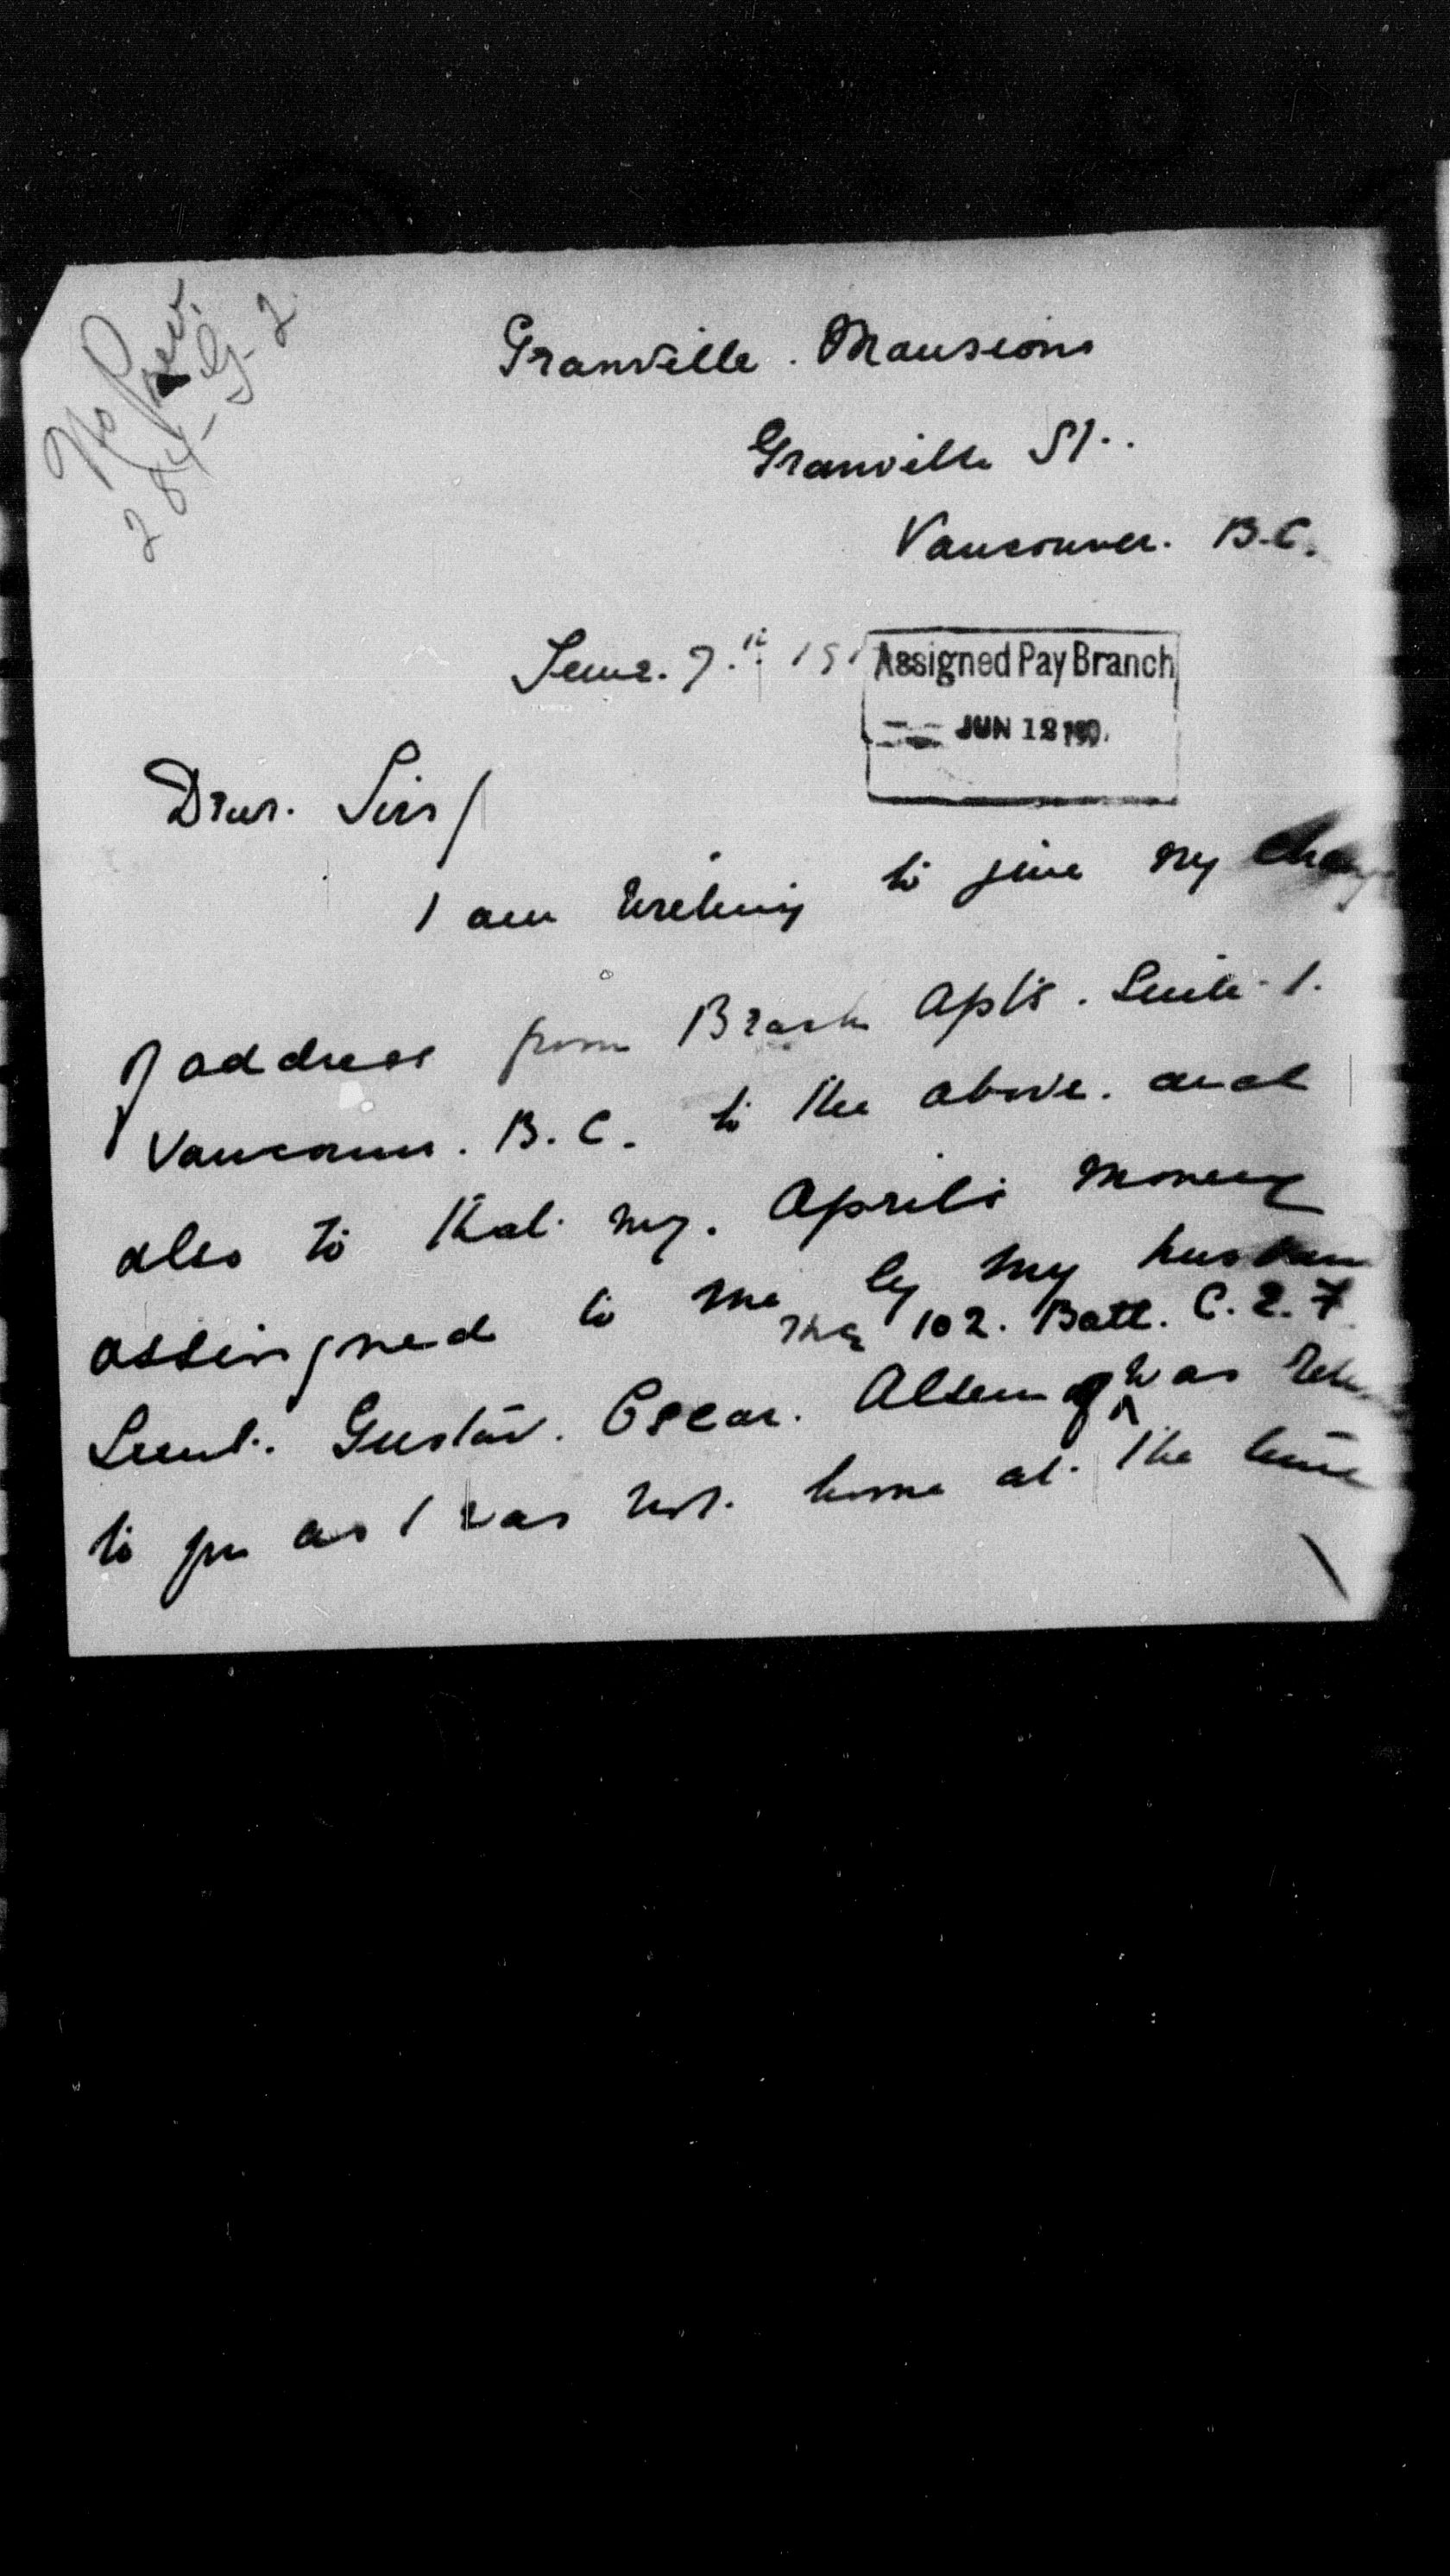 No Prev.
284-G-2
Granville. Mansions
Granville St..
Vancouver. B.C.
June. 7.th 191
Assigned Pay Branch
JUN 12
Dear. Sir/
I am writing to give my chang
of address from Beach Apts. Suite-1.
Vancouver. B.C. to the above. and
also to that my. Aprils money
assingned to me by my husban
The 102. Batt. C.E.F.
Lieut. Gustav. Oscar. was
to you as I was not. home at the time